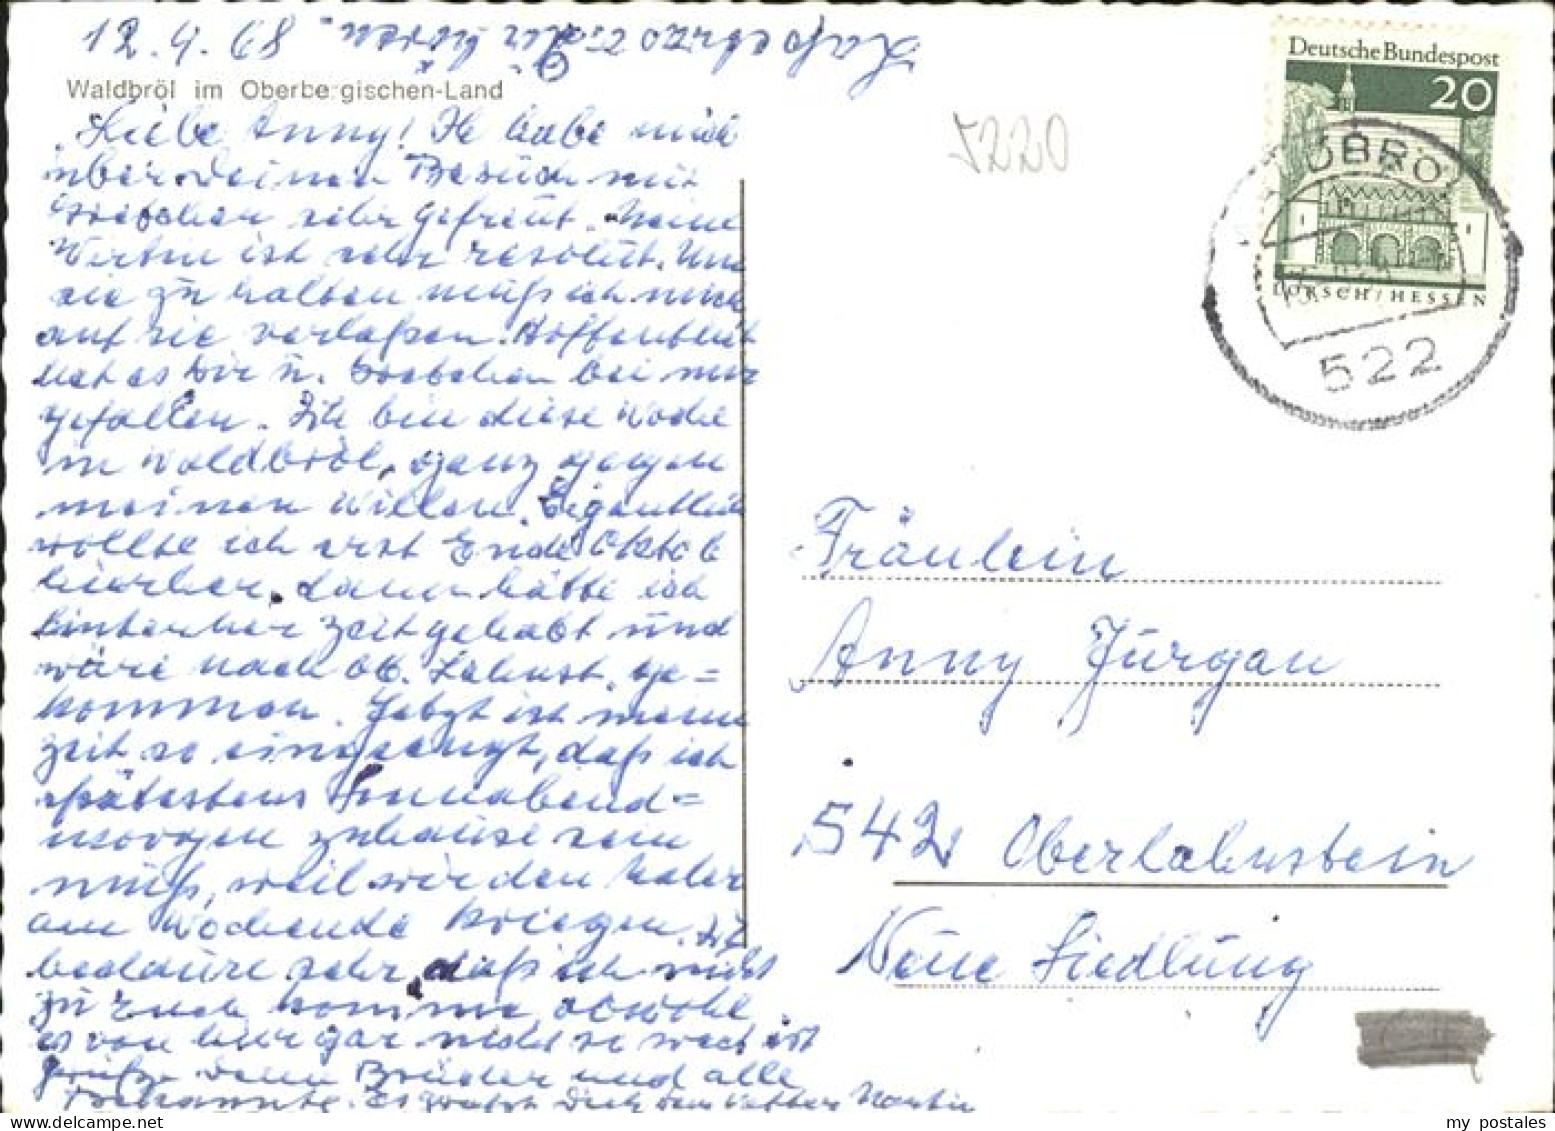 12.9.68
Waldbröl im Oberbergischen-Land
Liebe Anny! Ich habe mich
über deinen Besuch mit
sehr gefreut. Meine
Wirtin ist sehr resolut. Um
sie zu halten muß ich mich
auf sie verlaßen. Hoffentlich
hat es Dir u. bei mir
gefallen. Ich bin diese Woche
in Waldbröl, ganz gegen
meinen Willen. Eigentlich
wollte ich erst Ende Oktob
hierher. dann hätte ich
hinterher Zeit gehabt und
wäre nach Ob. Lahnst. ge=
kommen. Jetzt ist meine
Zeit so eingeengt, daß ich
spätestens Sonnabend=
morgen zuhause sein
muß, weil wir den Maler
am Wochende kriegen. Ich
bedaure sehr, daß ich nicht
zu euch komme, obwohl
es von hier gar nicht so weit ist
Grüße deine Brüder und alle
Bekannte. Es grüßt Dich dein Vetter Martin
5220
Deutsche Bundespost
20
LORSCH/HESSEN
522
Fräulein
Anny Jürgan
542 Oberlahnstein
Neue Siedlung
my postales